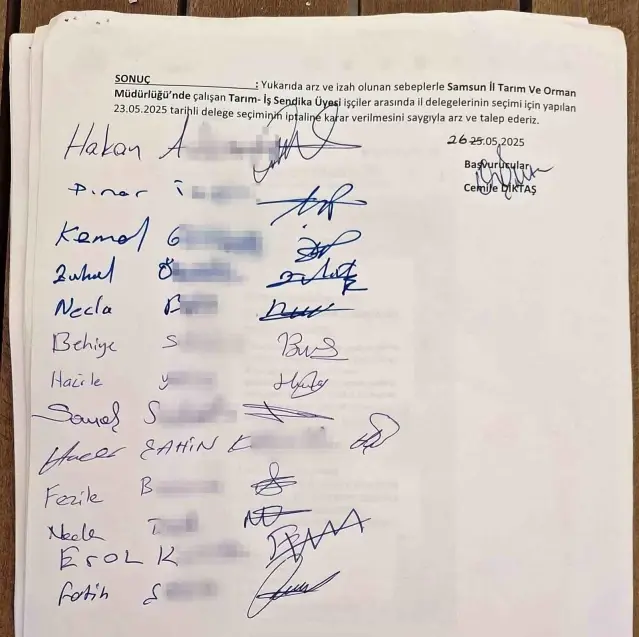 SONUÇ : Yukarıda arz ve izah olunan sebeplerle Samsun İl Tarım Ve Orman
Müdürlüğü'nde çalışan Tarım- İş Sendika Üyesi işçiler arasında il delegelerinin seçimi için yapılan
23.05.2025 tarihli delege seçiminin iptaline karar verilmesini saygıyla arz ve talep ederiz.
26 25.05.2025
Başvurucular
Cemile DİKTAŞ
Hakan A
Pınar
Kemal G
Zuhal Ö
Necla
Behiye S
Hacile Y
S
Hacer ŞAHİN K
Fezile B
EROL K
Fatih